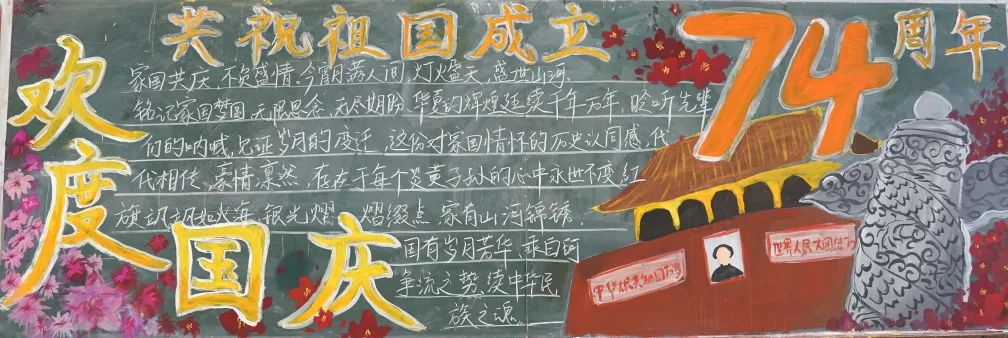 共祝祖国成立74周年
欢度国庆
家国共庆,不负盛情,今宵月满人间,灯火熠天,盛世山河.
铭记家国梦圆,无限思念,无尽期盼,华夏的辉煌延续千年万年,聆听先辈
们的呐喊,见证岁月的变迁,这份对家国情怀的历史认同感,代
代相传,豪情凛然,存在于每个炎黄子孙的心中永世不变,红
旗动动如火海,银光熠熠缀点,家有山河锦锈,
国有岁月芳华,乘百舸
争流之势,续中华民
族之魂
中华人民共和国万岁
世界人民大团结万